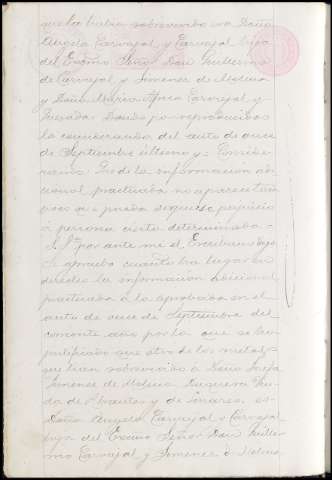 que la habia sobrevivido era Doña
Angela Carvajal y Carvajal hija
del Excmo Señor Don Guillermo
de Carvajal y Jimenez de Molina
y Doña Maria Carvajal y
Quesada. Dando por reproducidos
la considerando del auto de once
de Septiembre último y: Conside-
rando: Que de la información adi-
cional practicada no aparece tam
poco se pueda seguirse perjuicio
á persona cierta determinada =
S. Sª por ante mi el Escribano dijo
Se aprueba cuanto ha lugar en
derecho la información adicional
practicada á la aprobada en el
auto de once de Septiembre del
corriente año por la que se ha
justificado que otro de los nietos
que han sobrevivido á Doña Josefa
Jimenez de Molina Viu-
da de Abrantes y de Linares, es
Doña Angela Carvajal y Carvajal
hija del Excmo Señor Don Guiller-
mo Carvajal y Jimenez de Molina